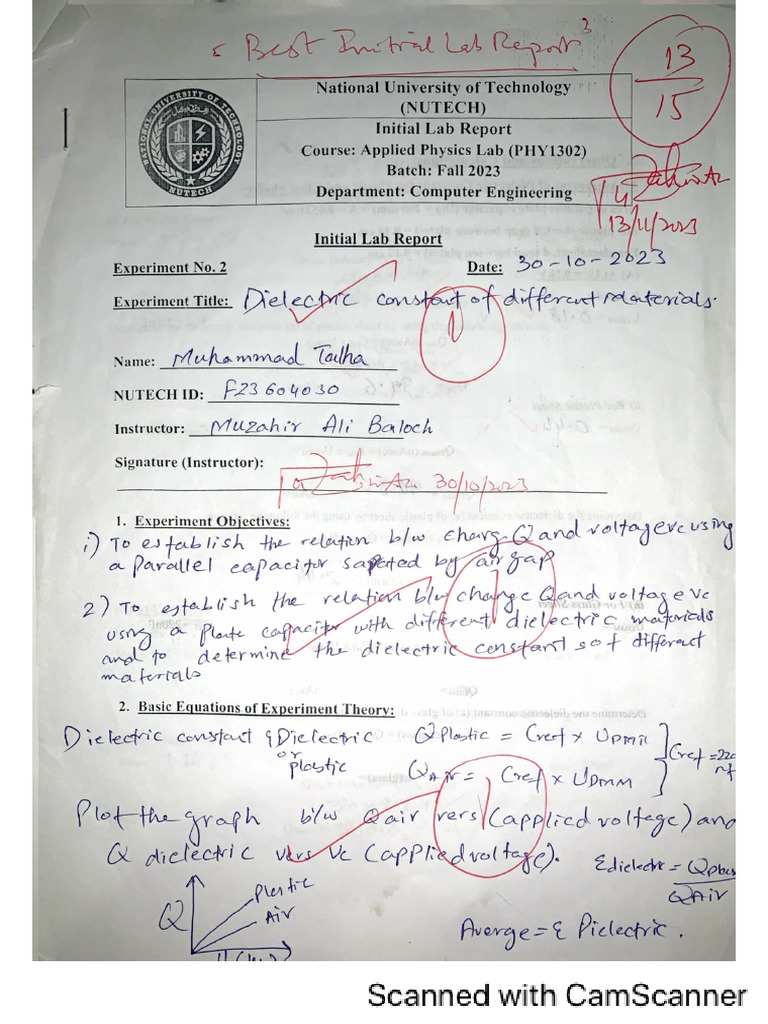 Best Initial Lab Report
13
15
National University of Technology
(NUTECH)
Initial Lab Report
Course: Applied Physics Lab (PHY1302)
Batch: Fall 2023
Department: Computer Engineering
NATIONAL UNIVERSITY OF TECHNOLOGY
NUTECH
13/11/2023
Initial Lab Report
Experiment No. 2 Date: 30-10-2023
Experiment Title: Dielectric constant of different materials.
Name: Muhammad Talha
NUTECH ID: F23604030
Instructor: Muzahir Ali Baloch
Signature (Instructor):
30/10/2023
1. Experiment Objectives:
i) To establish the relation b/w charg Q and voltage vc using
a parallel capacitor sapeted by air gap
2) To establish the relation b/w change Q and voltage Vc
using a plate capacitor with different dielectric materials
and to determine the dielectric constant s of different
materials
2. Basic Equations of Experiment Theory:
Dielectric constant & Dielectric Q Plastic = Cref x UDMM
or
plastic
Q Air = Cref x UDMM
Cref = 220
nf
Plot the graph b/w Q air vers (applied voltage) and
Q dielectric vers Vc (applied voltage).
ε dielectric = Q
Q Air
Q
Plastic
Air
Averge = ε Dielectric.
Scanned with CamScanner